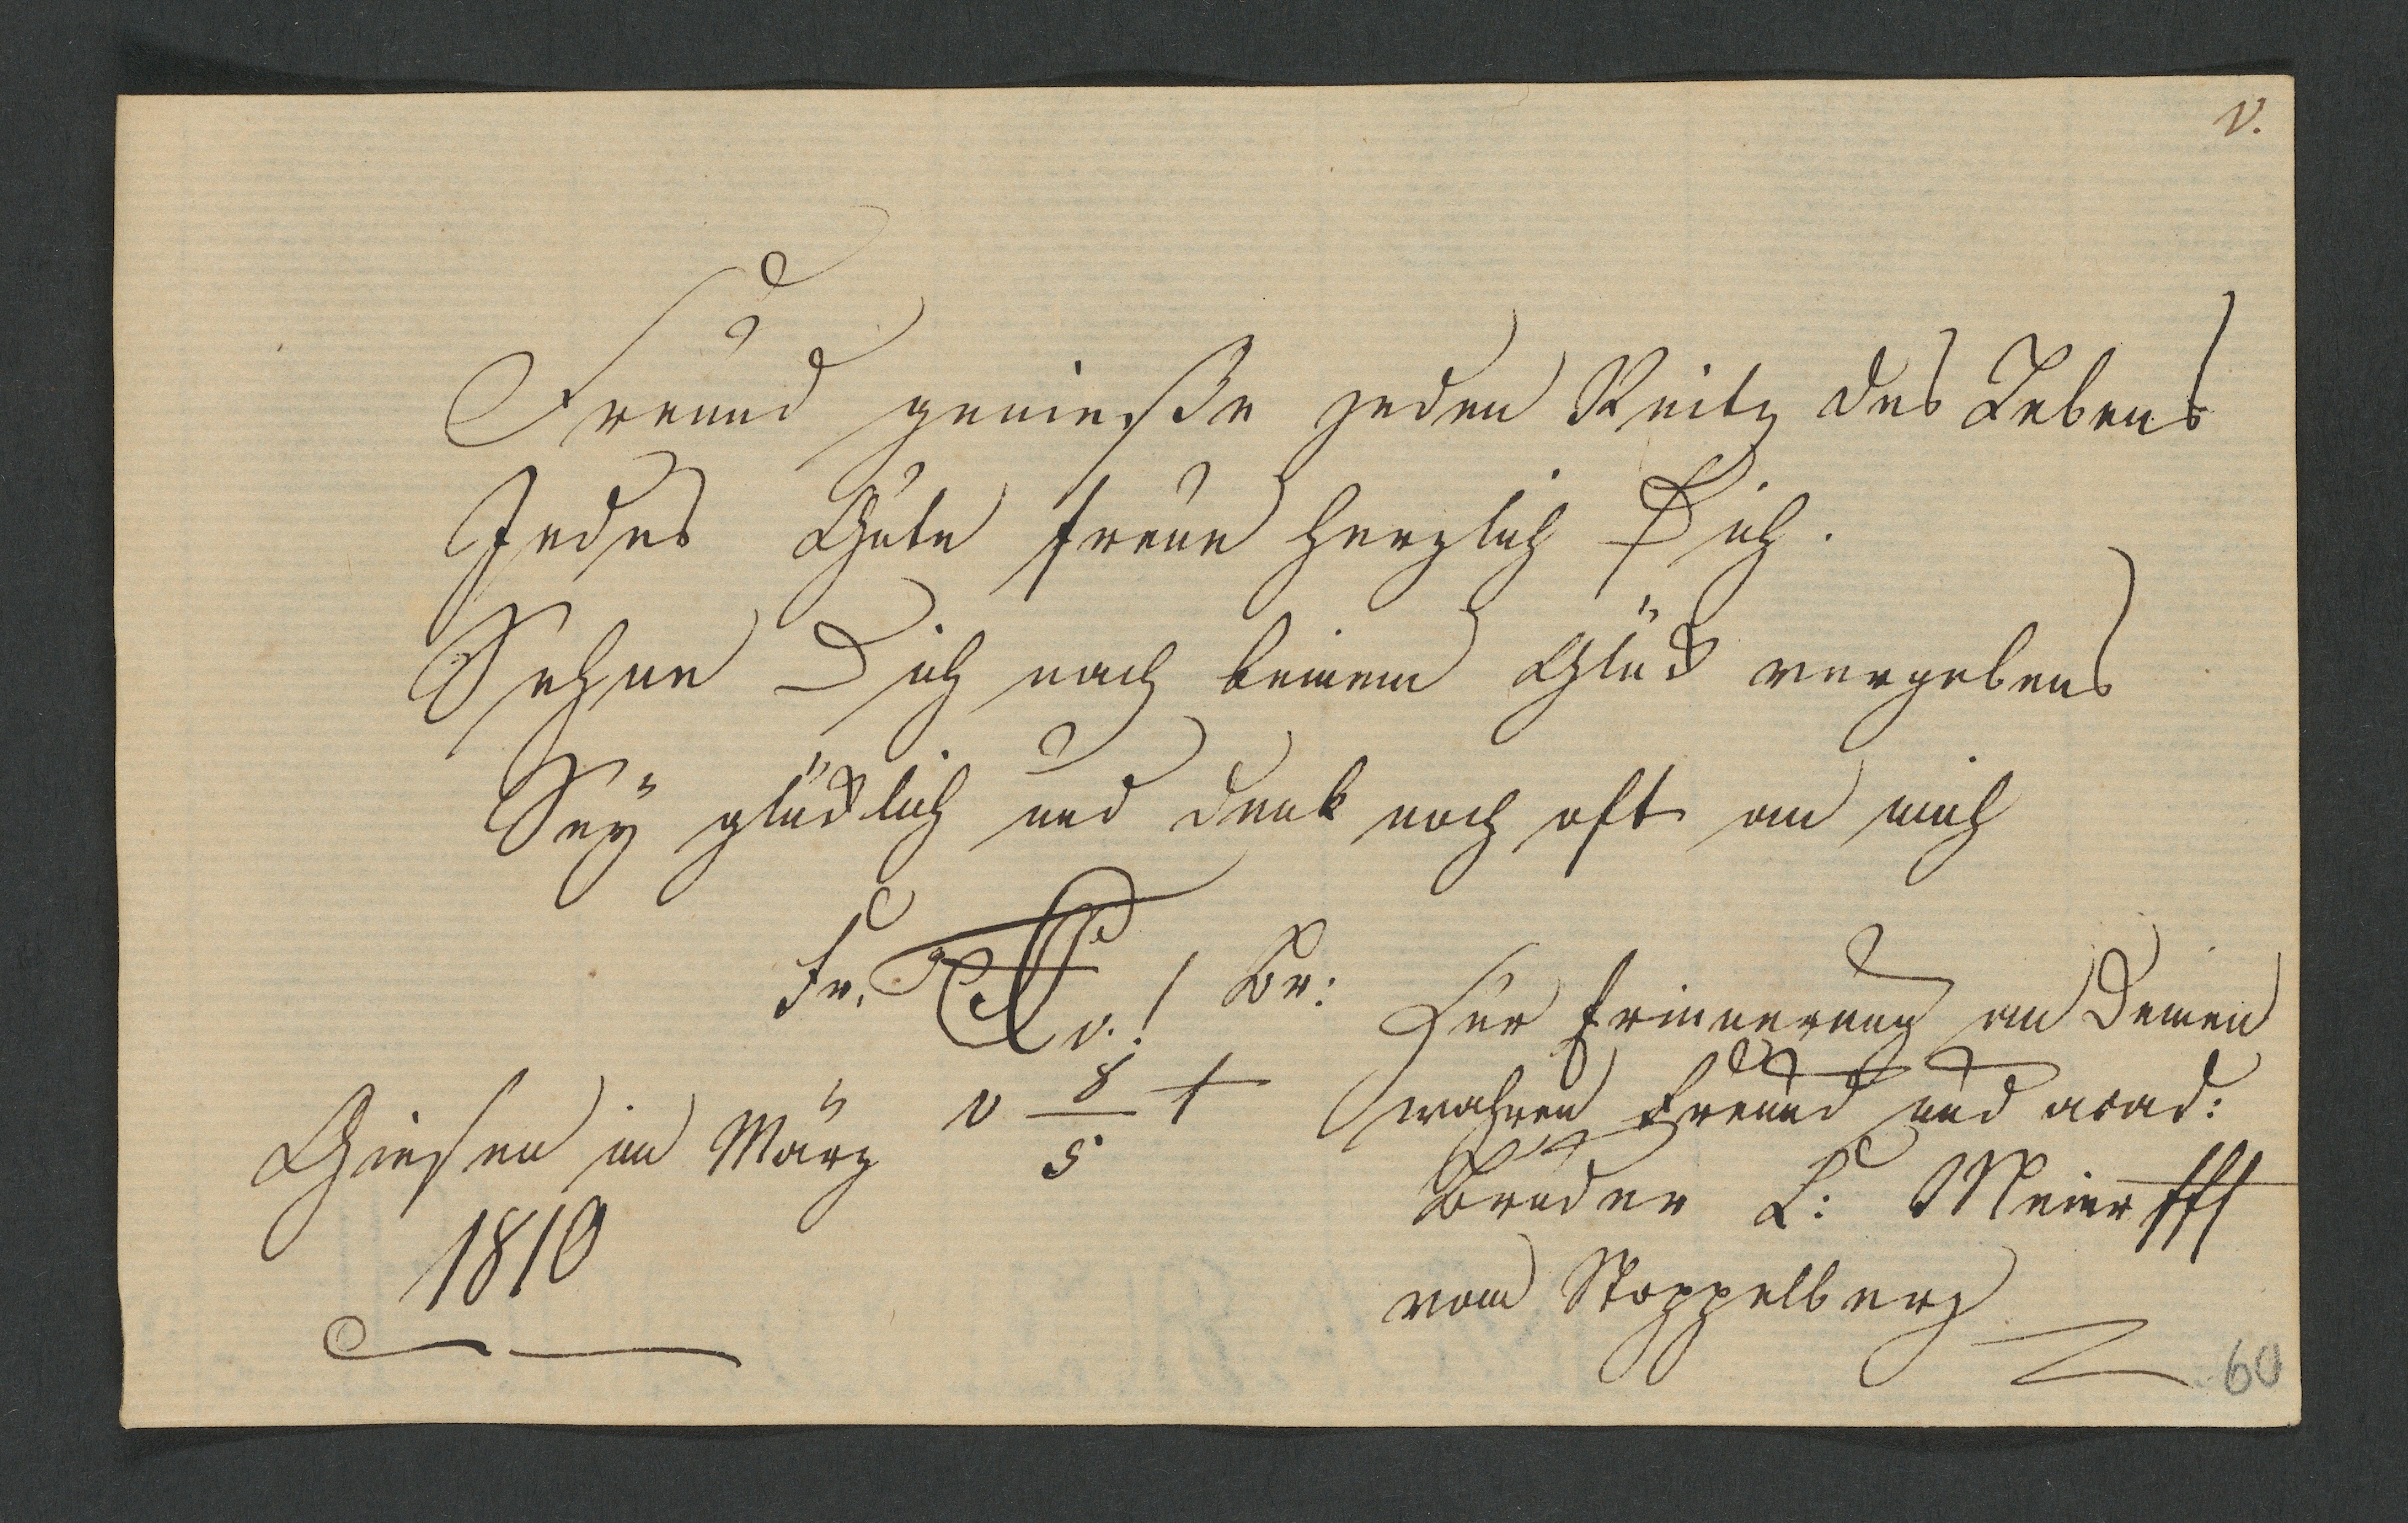 v.
Freund genieße jeden Reitz des Lebens
Jedes Gute freue herzlich Dich.
Sehne Dich nach keinem Glück vergebens
Sey glücklich und denk noch oft an mich
Fr. v.! Br:
Giesen im März
1810
v 8/5 +
Zur Erinnerung an Deinen
wahren Freund und acad:
Bruder L: Meier
vom Stoppelberg
60